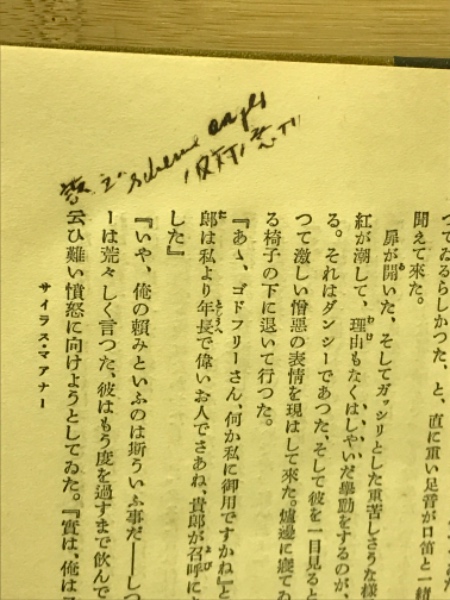 scheme
つてゐるらしかつた、と、直に重い足音が口笛と一緒
聞えて来た。
扉が開いた、そしてガッシリとした重苦しさうな様
紅が潮して、理由もなくはしやいだ擧動をするのが、
る。それはダンシーであつた、そして彼を一目見ると
つて激しい憎惡の表情を現はして来た。爐邊に寢てゐ
る椅子の下に退いて行つた。
『あゝ、ゴドフリーさん、何か私に御用ですかね』と
郎は私より年長で偉いお人でさあね、貴郎が召呼に
した』
『いや、俺の頼みといふのは斯ういふ事だ――しつ
ーは荒々しく言つた、彼はもう度を過すまで飲んで
云ひ難い憤怒に向けようとしてゐた。『實は、俺は
サイラス・マアナー